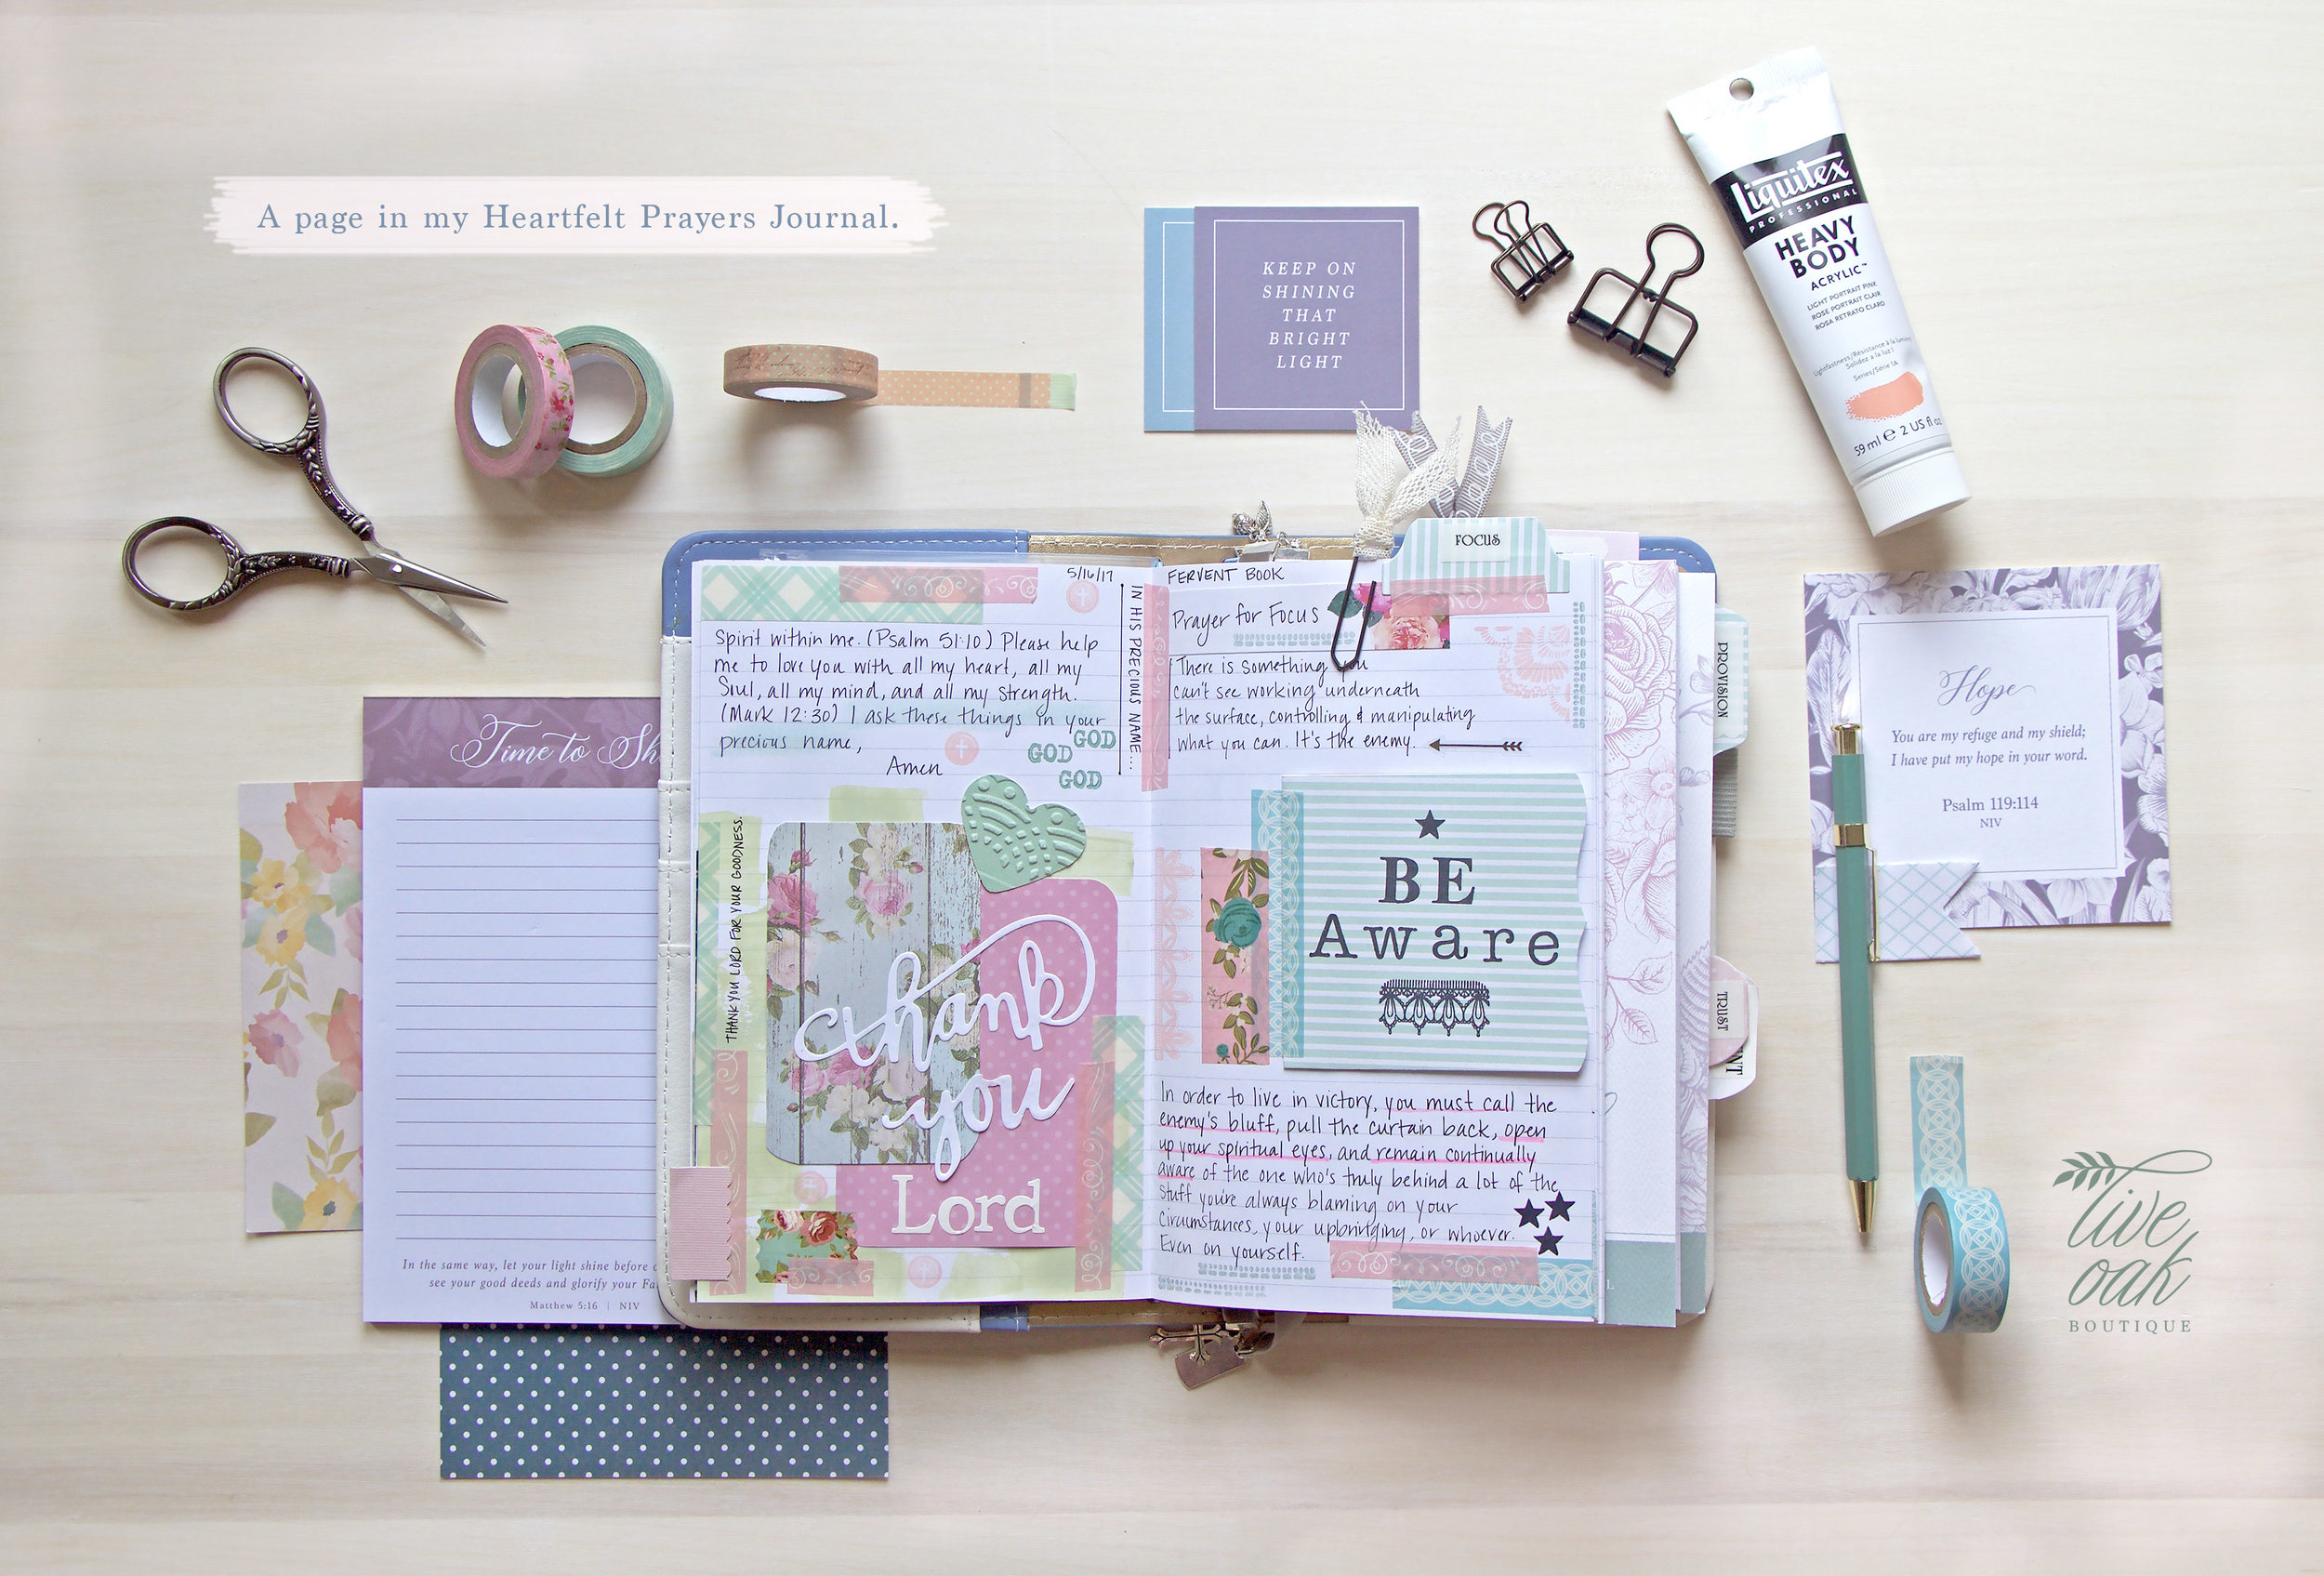 A page in my Heartfelt Prayers Journal.
KEEP ON
SHINING
THAT
BRIGHT
LIGHT
Liquitex
PROFESSIONAL
HEAVY
BODY
ACRYLIC™
LIGHT PORTRAIT PINK
ROSE PORTRAIT CLAIR
ROSA RETRATO CLARO
Lightfastness/Résistance à la lumière
Solidez a la luz I
Series/Série 1A
59 ml e 2 US fl oz
Time to Sh
In the same way, let your light shine before
see your good deeds and glorify your
Matthew 5:16 | NIV
5/16/17
Spirit within me. (Psalm 51:10) Please help
me to love you with all my heart, all my
Soul, all my mind, and all my strength.
(Mark 12:30) I ask these things in your
precious name,
Amen
GOD
GOD
GOD
IN HIS PRECIOUS NAME...
THANK YOU LORD FOR YOUR GOODNESS.
thank
you
Lord
FOCUS
FERVENT BOOK
Prayer for Focus
There is something you
can't see working underneath
the surface, controlling & manipulating
what you can. It's the enemy.
BE
Aware
In order to live in victory, you must call the
enemy's bluff, pull the curtain back, open
up your spiritual eyes, and remain continually
aware of the one who's truly behind a lot of the
stuff you're always blaming on your
circumstances, your upbringing, or whoever.
Even on yourself.
PROVISION
TRUST
Hope
You are my refuge and my shield;
I have put my hope in your word.
Psalm 119:114
NIV
live
oak
BOUTIQUE